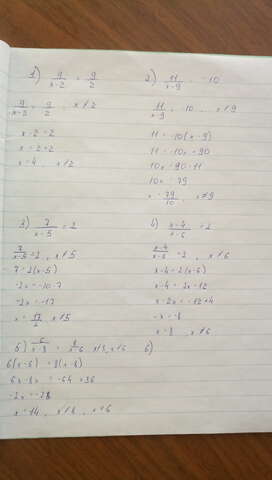 1) 9/x-2 = 9/2
9/x-2 = 9/2, x≠2
x-2=2
x=2+2
x=4, x≠2
2) 11/x-9 = -10
11/x-9 = -10, x≠9
11=-10(x-9)
11=-10x+90
10x=90-11
10x=79
x=79/10, x≠9
3) 7/x-5 = 2
7/x-5 = 2, x≠5
7=2(x-5)
-2x=-10-7
-2x=-17
x=17/2, x≠5
4) x-4/x-6 = 2
x-4/x-6 = 2, x≠6
x-4=2(x-6)
x-4=2x-12
x-2x=-12+4
-x=-8
x=8, x≠6
5) 6/x-8 = 8/x-6 x≠8, x≠6
6(x-6)=8(x-8)
6x-8x=-64+36
-2x=-28
x=14, x≠8, x≠6
6)